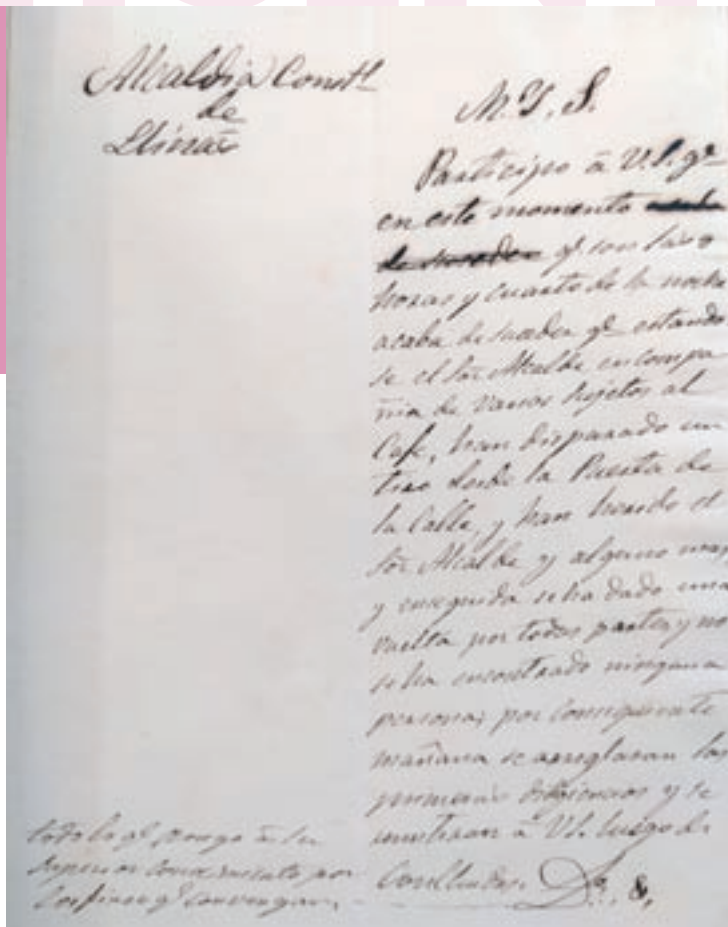 Alcaldia Constl
de
Llinás
M. Y. S.
Participo á V.S. qe
en este momento acaba
de suceder qe son las 8
horas y cuarto de la noche
acaba de suceder qe estando
se el Sor Alcalde en compa
ñia de varios sujetos al
Cafe, han disparado un
tiro desde la Puerta de
la Calle, y han herido el
Sor Alcalde y alguno mas,
y enseguida se ha dado una
vuelta por todas partes y no
se ha encontrado ninguna
persona, por consiguiente
mañana se arreglaran las
primeras diligencias y se
remitiran á VS. luego de
Concluidas. D. &.
todo lo qe pongo á su
Superior conocimiento por
los fines qe convengan.